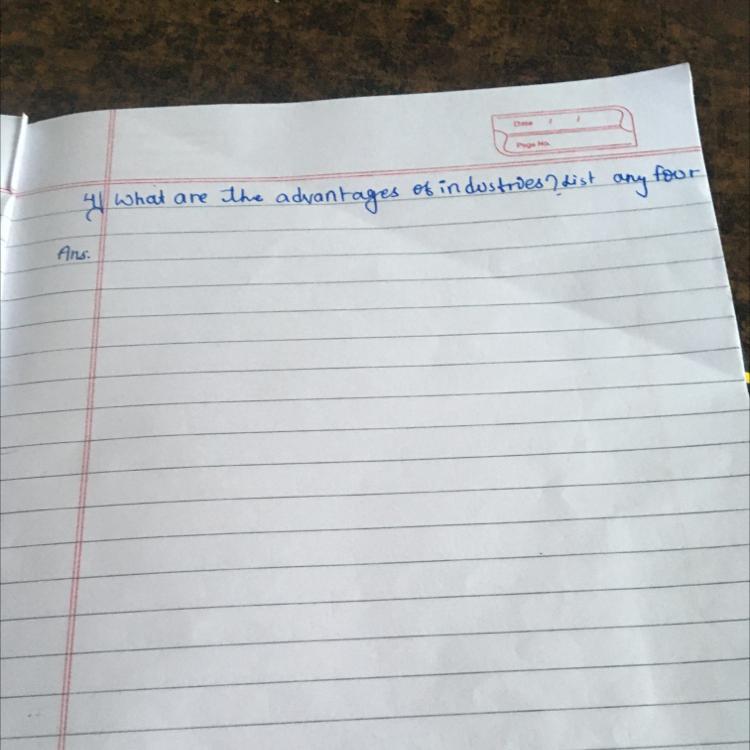 Date / /
Page No.
4) What are the advantages of industries? List any four
Ans.